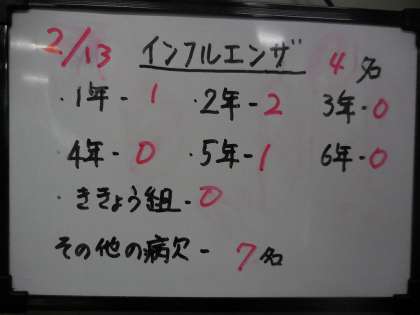 2/13 インフルエンザ 4名
・1年-1 ・2年-2 3年-0
・4年-0 ・5年-1 6年-0
・ききょう組-0
その他の病欠-7名